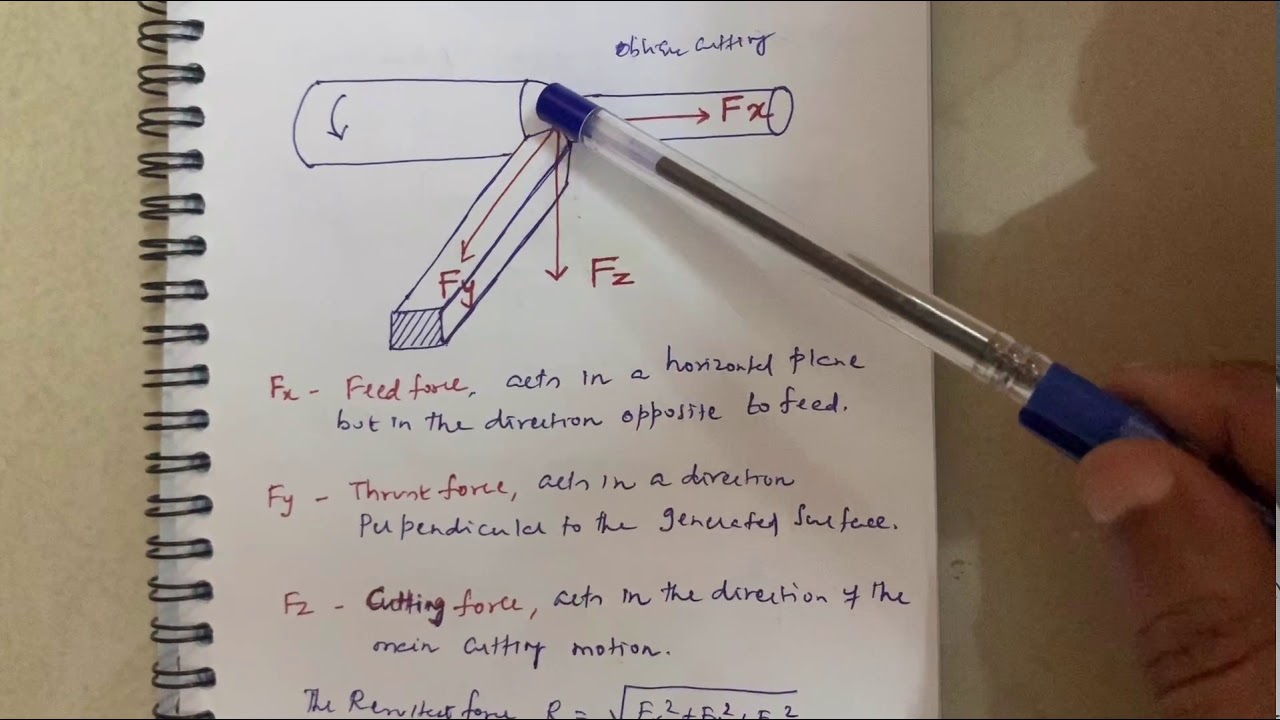 oblique cutting
Fx
Fy
Fz
Fx - Feed force, acts in a horizontal plane
but in the direction opposite to feed.
Fy - Thrust force, acts in a direction
Perpendicular to the generated surface.
Fz - Cutting force, acts in the direction of the
main cutting motion.
The Resultant force R =